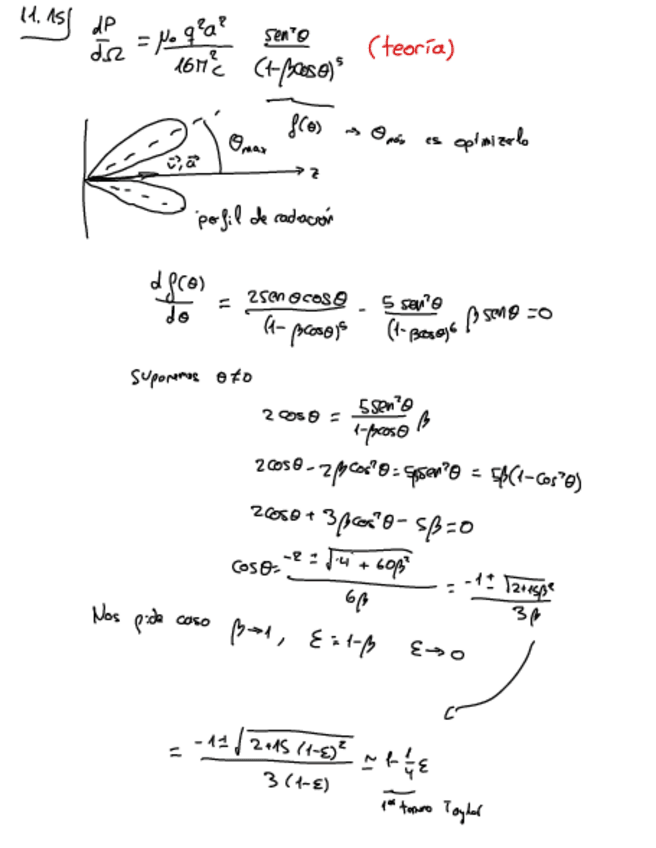 11.15
dP/dΩ = μ₀ q²a² / 16π²c · sen²θ / (1-βcosθ)⁵ (teoría)
f(θ) → θmáx es optimizarlo
θmax
v⃗, a⃗
z
perfil de radiación
d f(θ)/dθ = 2senθcosθ / (1-βcosθ)⁵ - 5 sen²θ / (1-βcosθ)⁶ β senθ = 0
Suponemos θ≠0
2cosθ = 5sen²θ / 1-βcosθ β
2cosθ - 2βcos²θ = 5βsen²θ = 5β(1-cos²θ)
2cosθ + 3βcos²θ - 5β = 0
cosθ = -2 ± √4 + 60β² / 6β = -1 ± √2+15β² / 3β
Nos pide caso β→1, ε = 1-β ε→0
= -1 ± √2+15(1-ε)² / 3(1-ε) ≃ 1-¼ε
1er termino Taylor